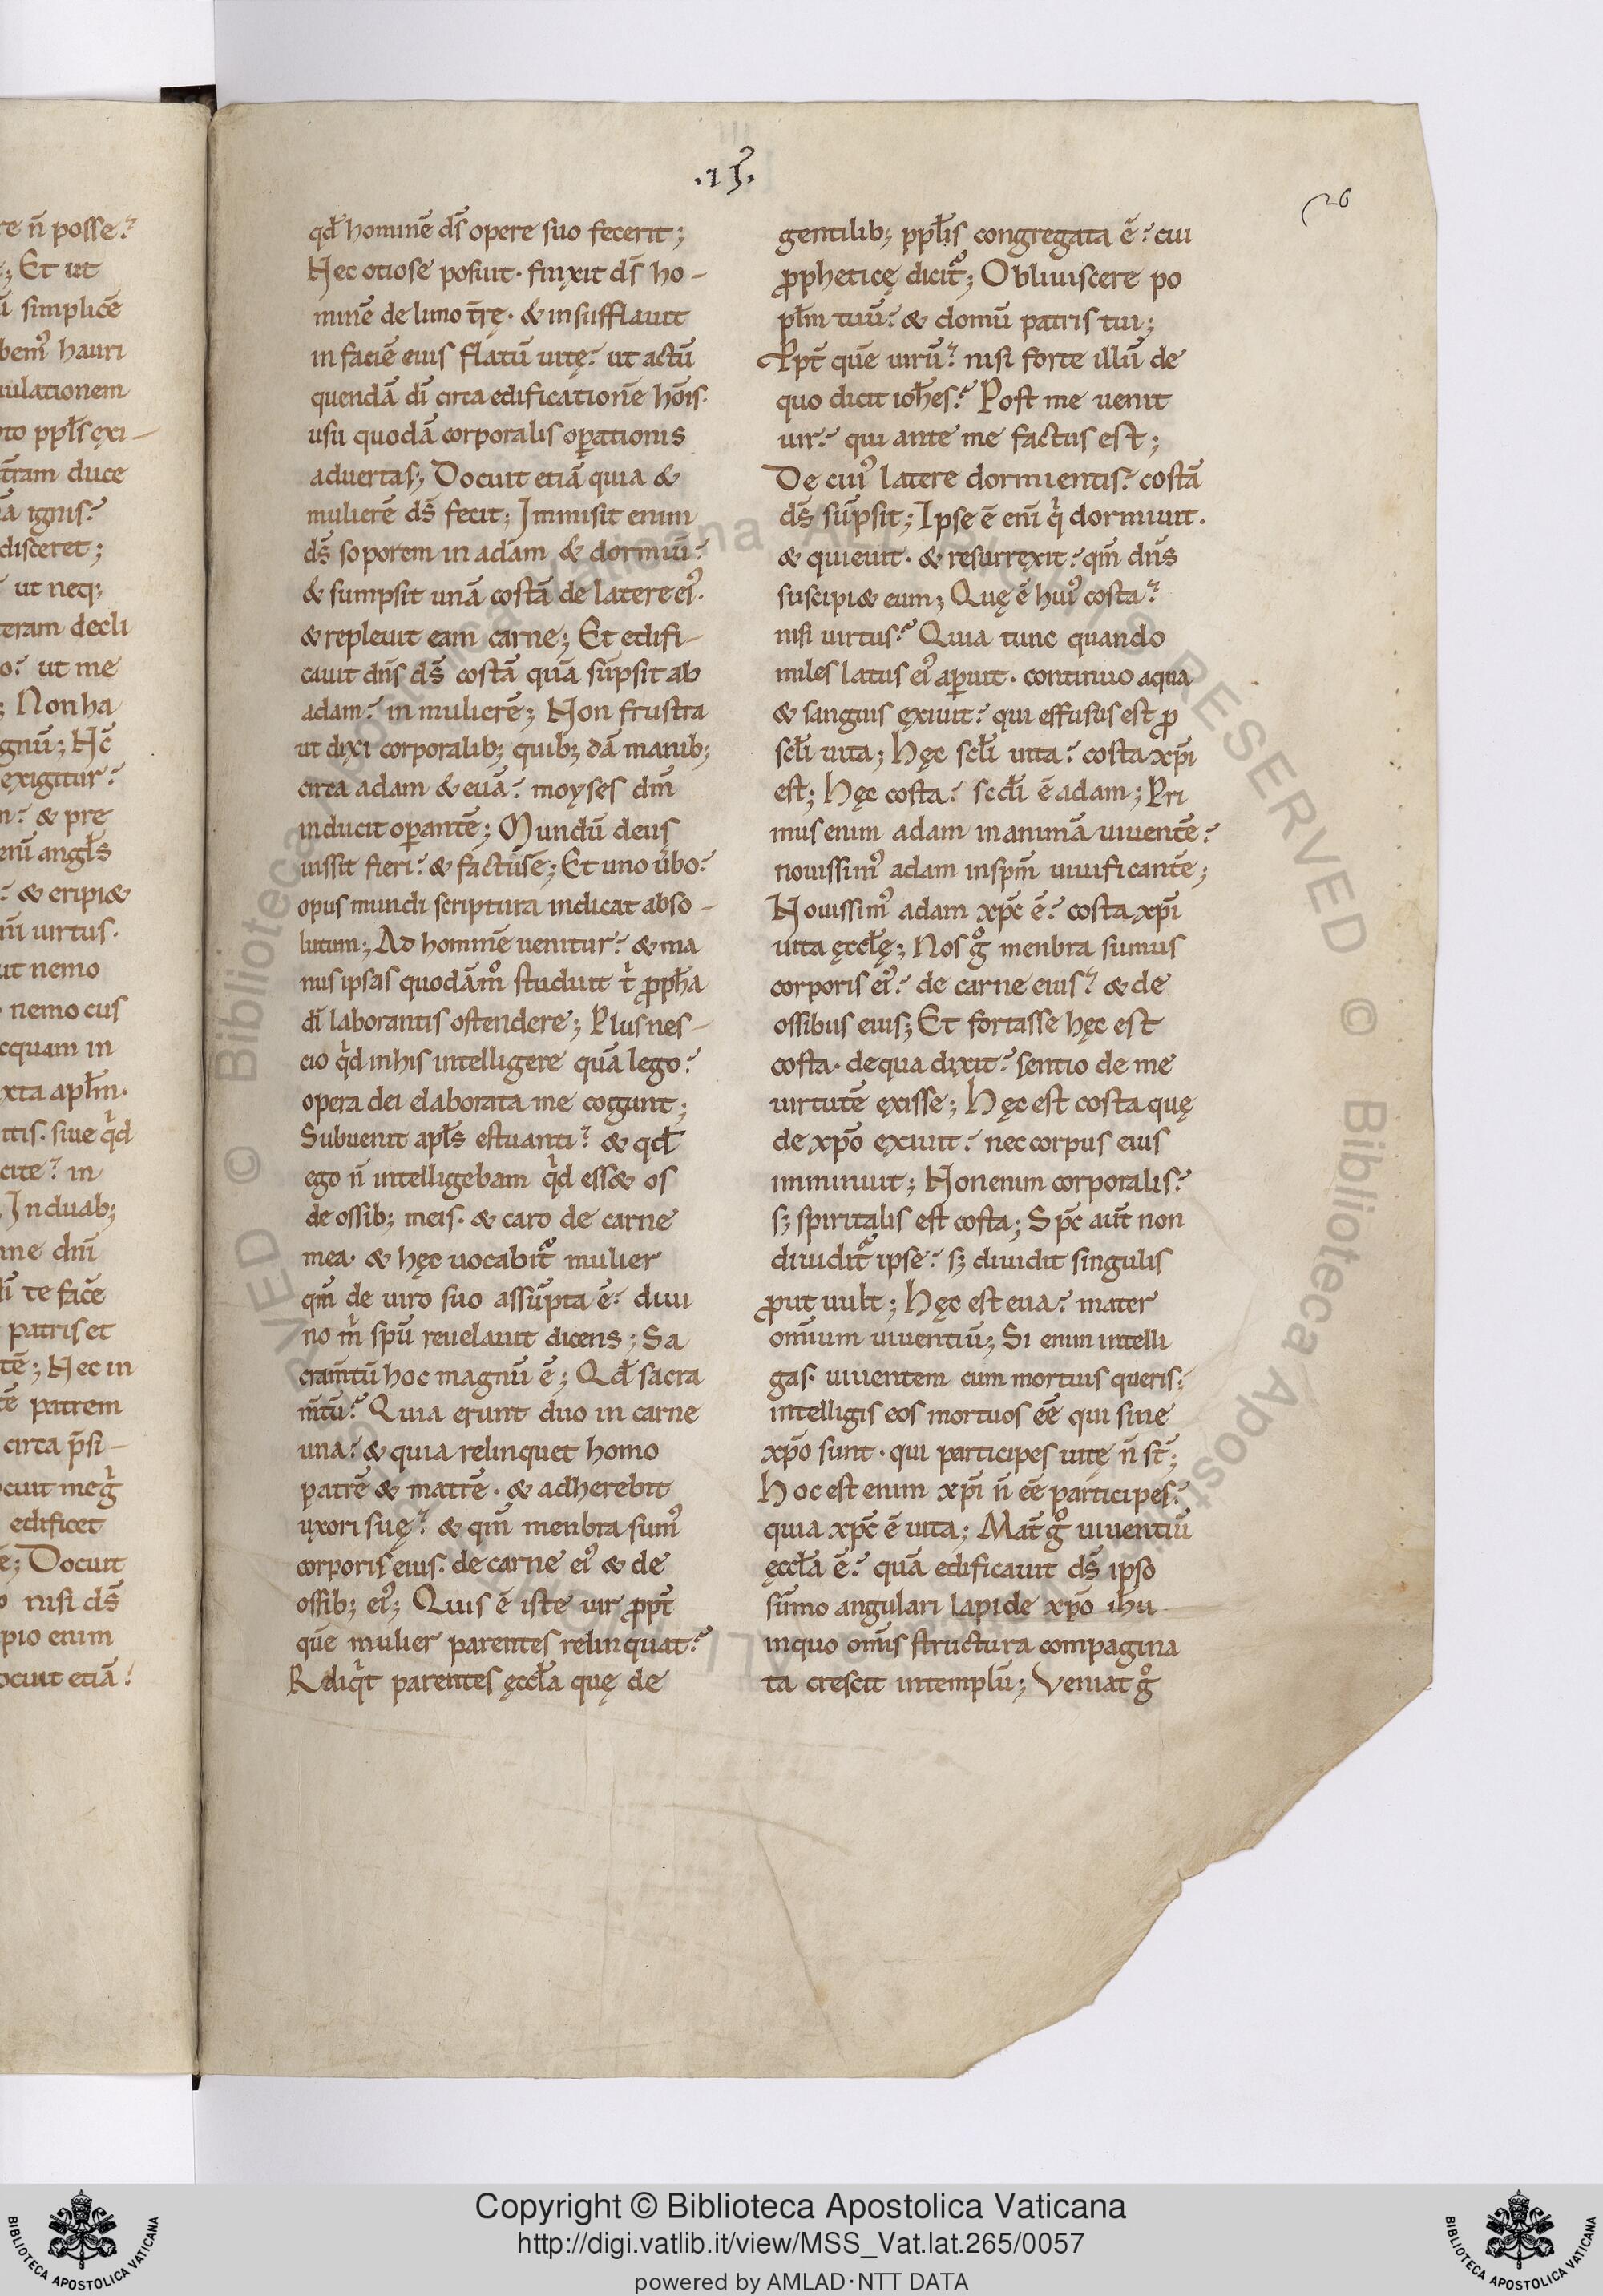 .II.
26
re n̄ posse?
; Et ut
ū simplicē
bem᾽ hauri
ulationem
oto ppl̄s ęxi-
t̄ram duce
ā ignis?
disceret;
ut neq;
teram decli
o? ut me
; Non ha
gnū; Hc̄
ęxigitur?
n? & pre
enī angl̄s
? & eripi&
nī uirtus.
ut nemo
nemo cus
cquam in
xta apl̄m.
itis. siue qd
cite? in
. In duab;
ine dn̄i
te facē
patris et
tē; Nec in
tē patrem
circa p̄si-
ocuit me g̊
edificet
ē; Docuit
o nisi ds̄
pio enim
ocuit etiā?
qd̄ hominē ds̄ opere suo fecerit;
Nec otiose posuit. finxit ds̄ ho-
minē de limo t̄rę. & insufflauit
in faciē eius flatū uitę? ut actū
quendā dī circa edificationē hōis.
usu quodā corporalis oꝑationis
aduertas; Docuit etiā quia &
mulierē ds̄ fecit; Immisit enim
ds̄ soporem in adam & dormiū?
& sumpsit unā costā de latere ei᾽.
& repleuit eam carne; Et edifi-
cauit dn̄s ds̄ costā quā sūpsit ab
adam? in mulierē; Non frustra
ut dixi corporalib; quib; dā manib;
circa adam & euā? moyses dm̄
inducit oꝑantē; Mundū deus
iussit fieri? & factus ē; Et uno ūbo?
opus mundi scriptura indicat abso-
lutum; Ad hominē uenitur? & ma
nus ipsas quodām̊ studuit t̓ ꝓph̄a
dī laborantis ostendere; Plus nes-
cio qd in his intelligere quā lego?
opera dei elaborata me cogunt;
Subuenit apl̄s estuanti? & qd̄
ego n̄ intelligebam qd ess& os
de ossib; meis. & caro de carne
mea. & hęc uocabit᷑ mulier
qm̄ de uiro suo assūpta ē? diui
no m̓ spū reuelauit dicens; Sa
cram̄tū hoc magnū ē; Qd̄ sacra
m̄tū? Quia erunt duo in carne
una? & quia relinquet homo
patrē & matrē. & adherebit
uxori suę? & qm̄ menbra sum᾽
corporis eius. de carne ei᾽ & de
ossib; ei᾽; Quis ē iste uir ꝓpt̄
quē mulier parentes relinquat?
Reliqt parentes ęccl̄a quę de
gentilib; ppl̄is congregata ē? cui
ꝓpheticę dicit᷑; Obliuiscere po
pl̄m tuū? & domū patris tui;
Ppt̄ quē uirū? nisi forte illū de
quo dicit ioh̄es? Post me uenit
uir? qui ante me factus est;
De cui᾽ latere dormientis? costā
ds̄ sūpsit; Ipse ē enī q̓ dormiuit.
& quieuit. & resurrexit? qm̄ dn̄s
suscipi& eum; Quę ē hui᾽ costa?
nisi uirtus? Quia tunc quando
miles latus ei᾽ aꝑuit. continuo aqua
& sanguis ęxiuit? qui effusus est ꝓ
scl̄i uita; Hęc scl̄i uita? costa xp̄i
est; Hęc costa? scd̄i ē adam; Pri
mus enim adam in animā uiuentē?
nouissim᾽ adam in spm̄ uiuificantē;
Nouissim᾽ adam xpc̄ ē? costa xp̄i
uita ęccl̄ę; Nos g̊ menbra sumus
corporis ei᾽? de carne eius? & de
ossibus eius; Et fortasse hęc est
costa. de qua dixit? sentio de me
uirtutē exisse; Hęc est costa quę
de xp̄o exiuit? nec corpus eius
imminuit; Non enim corporalis?
s; spiritalis est costa; Spc̄ aūt non
diuidit᷑ ipse? s; diuidit singulis
ꝓut uult; Hęc est eua? mater
omīum uiuentiū; Si enim intelli
gas. uiuentem cum mortuis queris?
intelligis eos mortuos eē qui sine
xp̄o sunt. qui participes uitę n̄ st̄;
Hoc est enim xp̄i n̄ eē participes?
quia xpc̄ ē uita; Mat̄ g̊ uiuentiū
ęccl̄a ē? quā edificauit ds̄ ipso
sūmo angulari lapide xp̄o ihu
in quo omīs structura compagina
ta crescit in templū; Veniat g̊
Copyright © Biblioteca Apostolica Vaticana
http://digi.vatlib.it/view/MSS_Vat.lat.265/0057
powered by AMLAD·NTT DATA
BIBLIOTECA APOSTOLICA VATICANA
BIBLIOTECA APOSTOLICA VATICANA